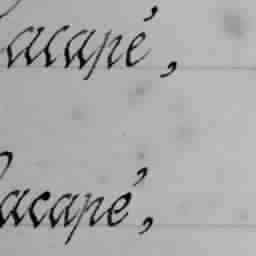 acapé,
acapé,